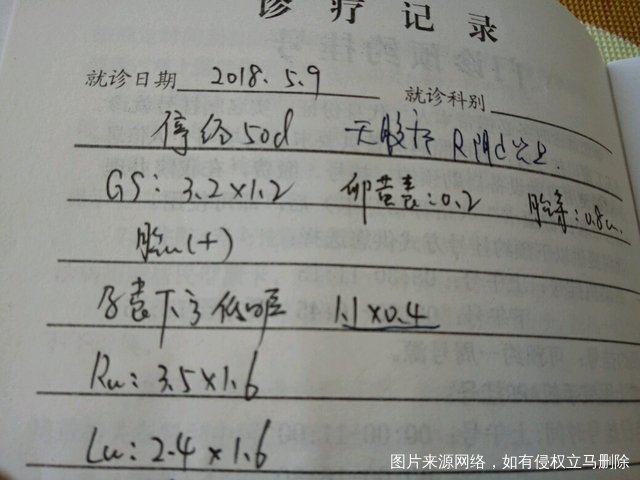 诊疗记录
就诊日期 2018.5.9 就诊科别
停经50d 无腹痛
GS: 3.2×1.2 卵黄囊:0.2 胎芽:0.8
胎心(+)
孕囊下方低回声 1.1×0.4
Ru: 3.5×1.6
Lu: 2.4×1.6
图片来源网络，如有侵权立马删除